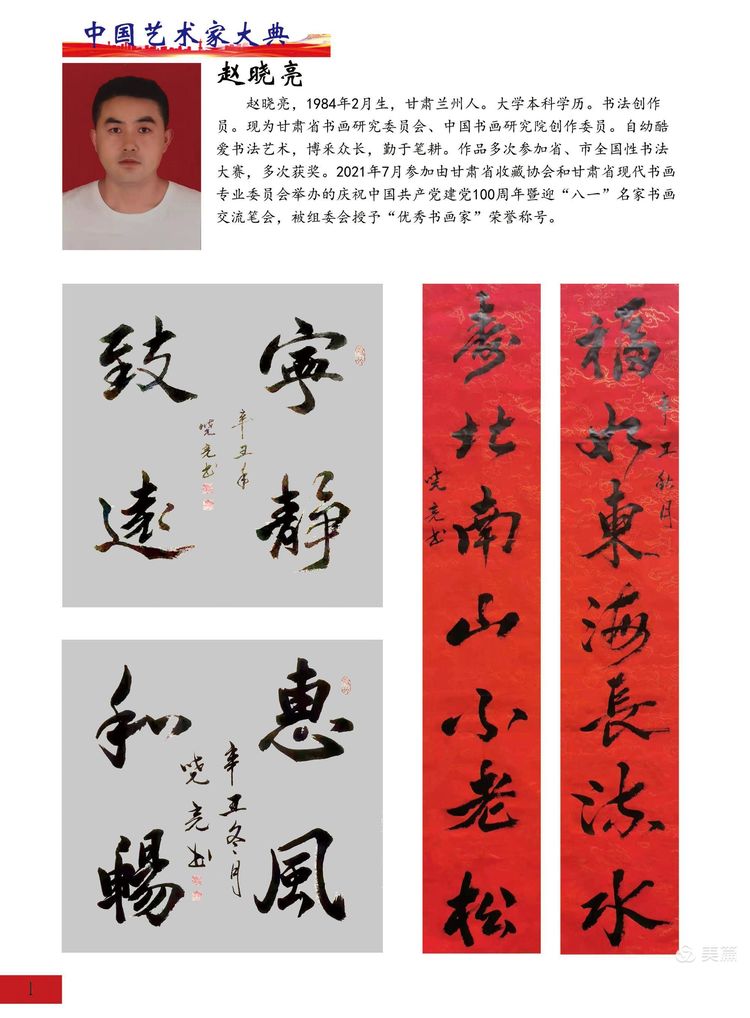 中国艺术家大典
赵晓亮
赵晓亮，1984年2月生，甘肃兰州人。大学本科学历。书法创作
员。现为甘肃省书画研究委员会、中国书画研究院创作委员。自幼酷
爱书法艺术，博采众长，勤于笔耕。作品多次参加省、市全国性书法
大赛，多次获奖。2021年7月参加由甘肃省收藏协会和甘肃省现代书画
专业委员会举办的庆祝中国共产党建党100周年暨迎“八一”名家书画
交流笔会，被组委会授予“优秀书画家”荣誉称号。
寧静
致遠
辛丑年
晓亮书
惠風
和暢
辛丑冬月
晓亮书
福如東海長流水
辛丑秋月
寿比南山不老松
晓亮书
1
美篇